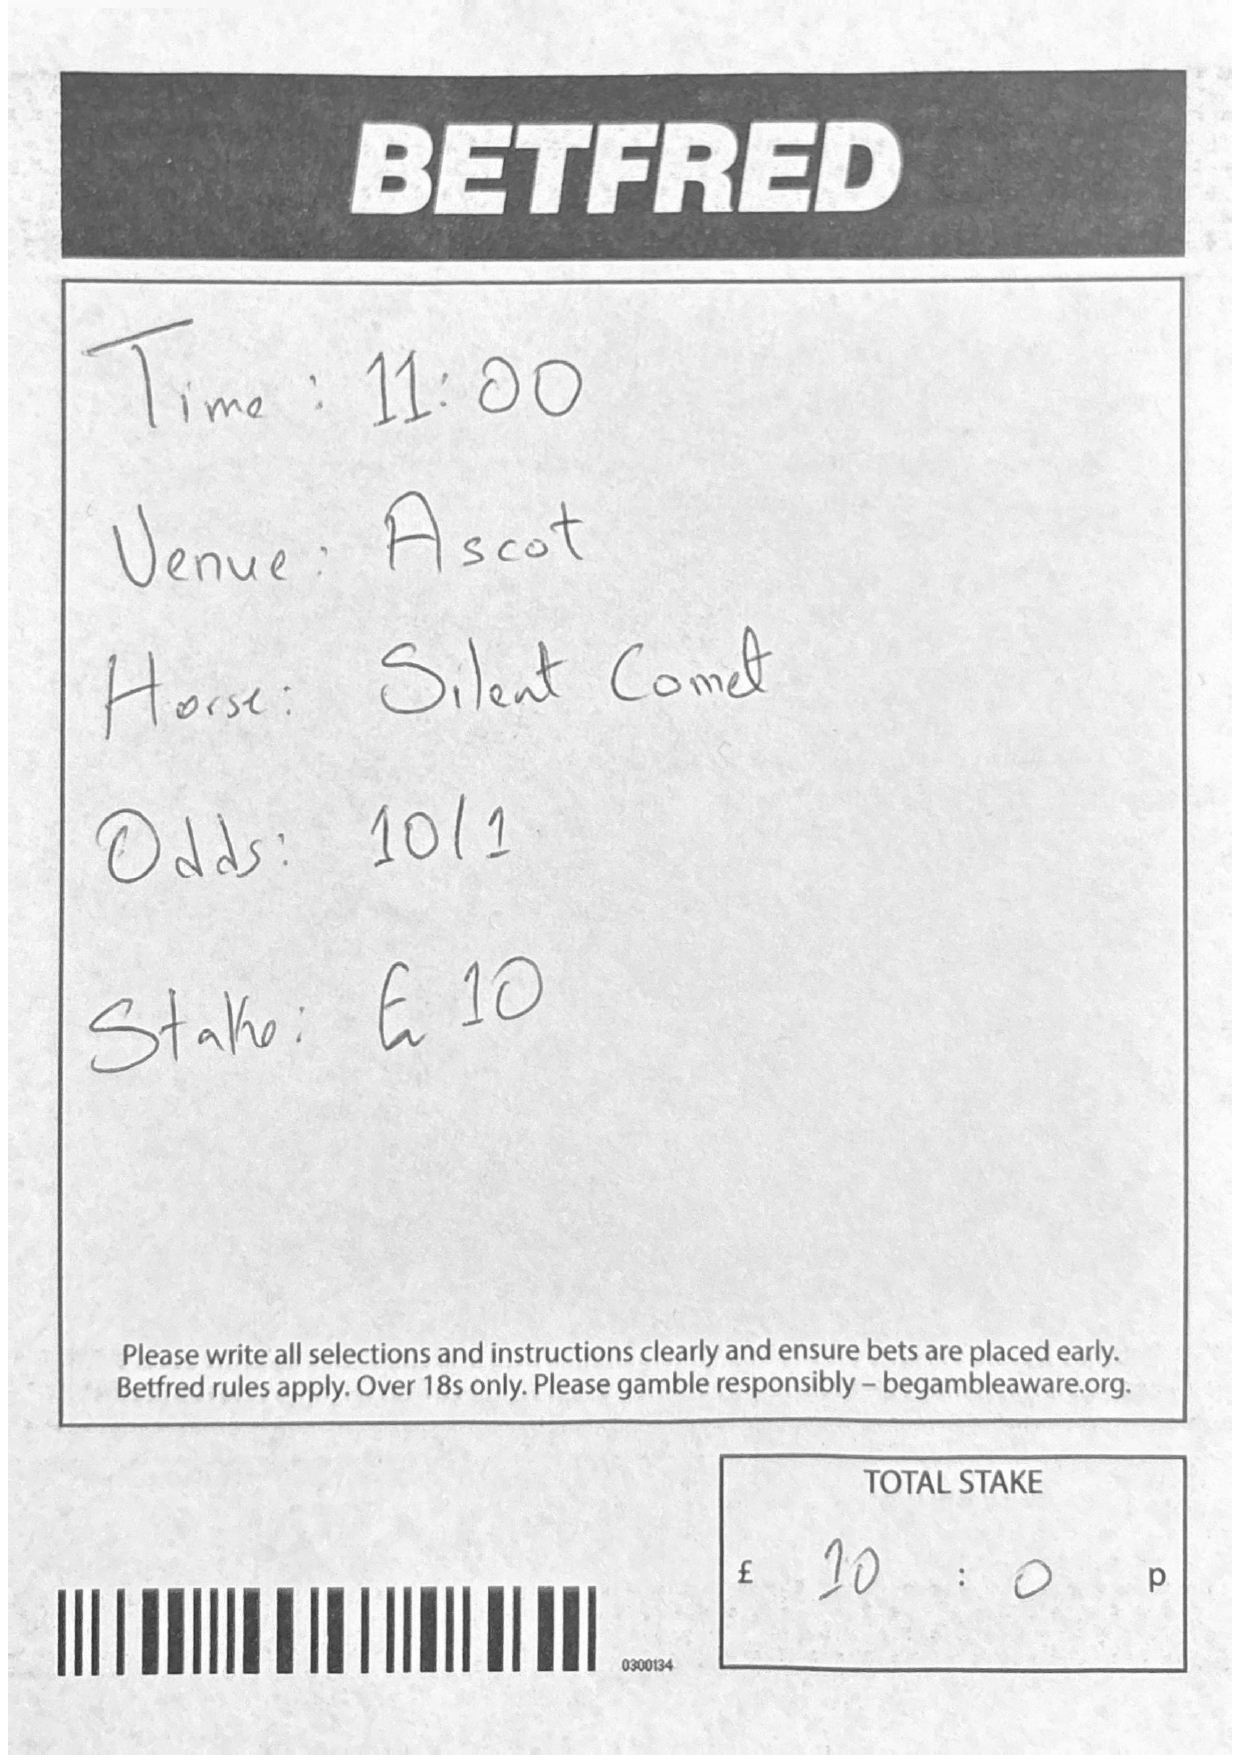 BETFRED
Time: 11:00
Venue: Ascot
Horse: Silent Comet
Odds: 10/1
Stake: £ 10
Please write all selections and instructions clearly and ensure bets are placed early.
Betfred rules apply. Over 18s only. Please gamble responsibly – begambleaware.org.
TOTAL STAKE
£ 10 : 0 p
0300134